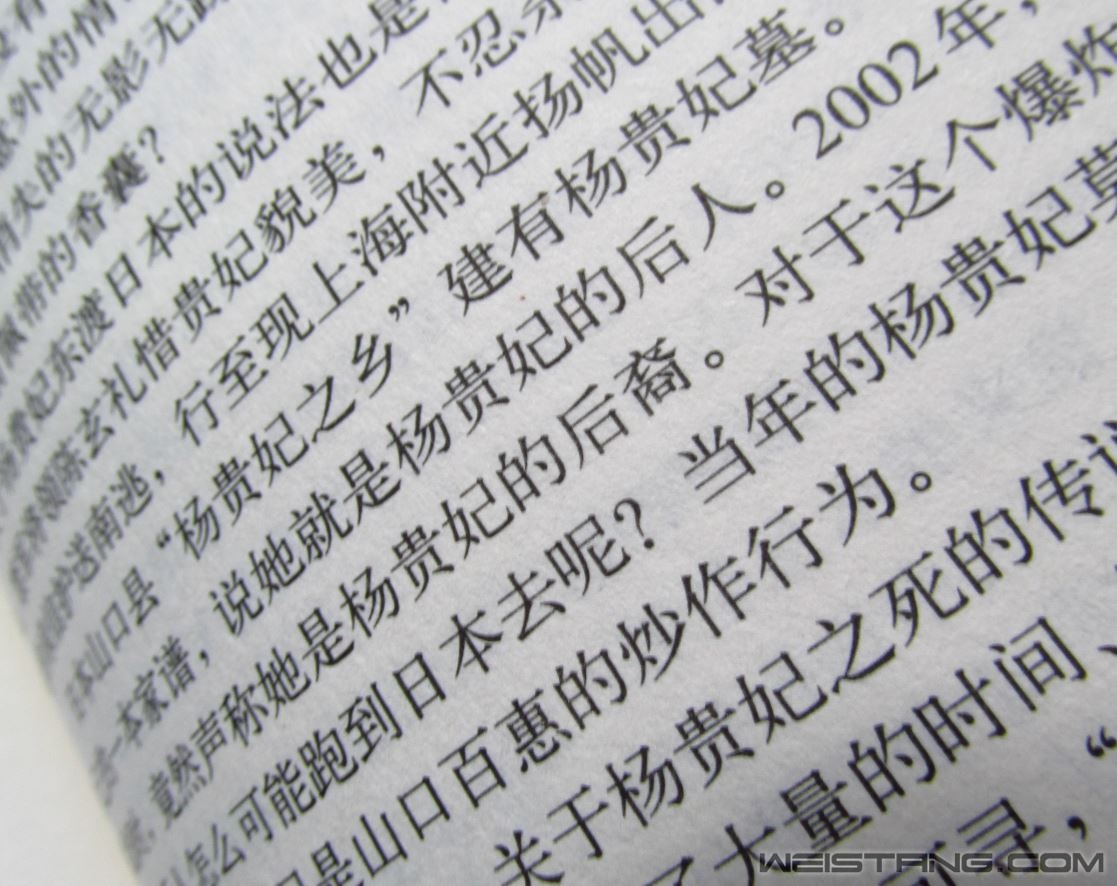 有
意外的情
消失的无影无
佩带的香囊？
贵妃东渡日本的说法也是
将领陈玄礼惜贵妃貌美，不忍杀
护送南逃，行至现上海附近扬帆出
本山口县“杨贵妃之乡”建有杨贵妃墓。
一本家谱，说她就是杨贵妃的后人。2002 年，
竟然声称她是杨贵妃的后裔。对于这个爆炸
怎么可能跑到日本去呢？当年的杨贵妃
是山口百惠的炒作行为。
关于杨贵妃之死的传
了大量的时间、
可寻，“
WEISTANG.COM